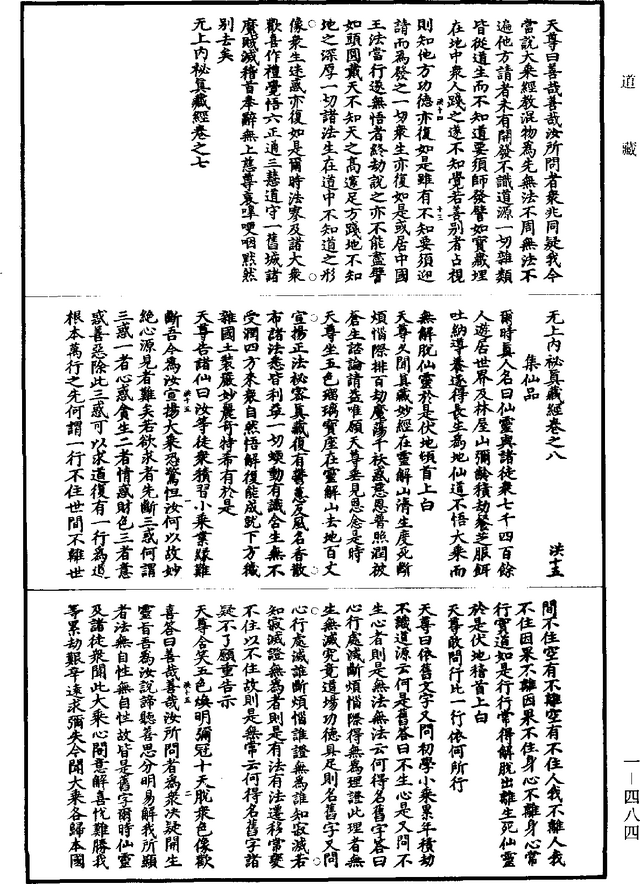 道藏
天尊曰善哉善哉汝所問者衆兆同疑我今
當說大乘經教混物為先無法不周無法不
遍他方請者未有開發不識道源一切雜類
皆從道生而不知道要須師發譬如寶藏埋
在地中衆人踐之遂不知覺若善別者占視
則知他方功德亦復如是雖有不知要須迎
請而為發之一切衆生亦復如是或居中國
王法當行遂無悟者終劫說之亦不能盡譬
如頭圓戴天不知天之高遠足方踐地不知
地之深厚一切諸法生在道中不知道之形
像衆生迷惑亦復如是爾時法寥及諸大衆
歡喜作禮覺悟六正通三慧道守一舊城諸
魔賊滅稽首奉辭無上慈尊哀嘷哽咽黙然
別去矣
无上内祕真藏經卷之七
无上内祕真藏經卷之八 洪十五
集仙品
爾時真人名曰仙靈與諸徒衆七千四百餘
人遊居世界及林屋山彌齡積劫餐芝服餌
吐納導養遂得長生為地仙道不悟大乘而
無解脫仙靈於是伏地頓首上白
天尊久聞真藏妙經在靈解山清生度死斷
煩惱際排百劫魔蕩千袄惑慈恩普照潤被
蒼生諮論請益唯願天尊垂見恩念是時
天尊坐五色瑠璃寶座在靈解山去地百丈
宣揚正法祕密真藏復有鬱蒽及風名香散
布諸法悉皆利益一切蠕動有識含生無不
受潤四方來衆自然悟解復能成就下方穢
雜國土裝嚴妙麗奇特希有於是
天尊告諸仙曰汝等徒衆積習小乘業緣難
斷吾今為汝宣揚大乘恐驚怛汝何以故妙
絶心源見者難矣若欲求者先斷三惑何謂
三惑一者心惑貪生二者情惑財色三者意
惑善惡除此三惑可以求道復有一行為道
根本萬行之先何謂一行不住世間不離世
間不住空有不離空有不住人我不離人我
不住因果不離因果不住身心不離身心常
行實道如是行行常得解脫出離生死仙靈
於是伏地稽首上白
天尊敢問行比一行依何所行
天尊曰依舊文字又問初學小乘累年積劫
不識道源云何是舊答曰不生心是又問不
生心者則是無法無法云何得名舊字答曰
心行處滅斷煩惱際得無為理證此理者無
生無滅究竟道場功德具足則名舊字又問
心行處滅誰斷煩惱誰證無為誰知寂滅若
知寂滅證無為者則是有法有法遷移常變
不住以不住故則是無常云何得名舊字諸
疑不了願重告示
天尊含笑五色煥明彌冠十天脫衆色像歡
喜答曰善哉善哉汝所問者為衆决疑開生
靈旨吾為汝說諦聽善思分明易解我所顯
者法無自性無自性故皆是舊字爾時仙靈
及諸徒衆聞此大乘心開意解喜恱難勝我
等累劫艱辛遠求彌失今聞大乘各歸本國
一—四八四